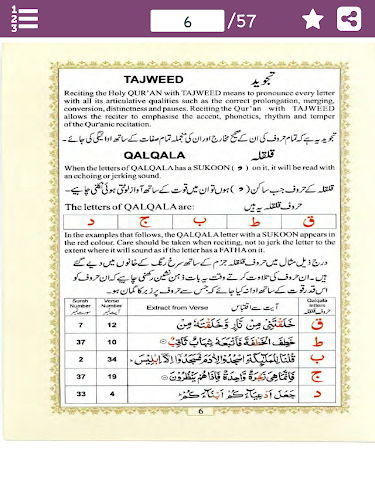 6 /57
TAJWEED تجوید
Reciting the Holy QUR'AN with TAJWEED means to pronounce every letter
with all its articulative qualities such as the correct prolongation, merging,
conversion, distinctness and pauses. Reciting the Qur'an with TAJWEED
allows the reciter to emphasise the accent, phonetics, rhythm and temper
of the Qur'anic recitation.
تجوید یہ ہے کہ تمام حروف کی ان کے صحیح مخارج اور ان کی جملہ تمام صفات کے ساتھ ادائیگی کی جائے۔
QALQALA قلقلہ
When the letters of QALQALA has a SUKOON ( ) on it, it will be read with
an echoing or jerking sound.
قلقلہ کے حروف جب ساکن ( ) ہوں تو ان میں قوت کے ساتھ آواز لوٹتی ہوئی نکلنی چاہیے۔
The letters of QALQALA are: حروف قلقلہ یہ ہیں
ق ط ب ج د
In the examples that follows, the QALQALA letter with a SUKOON appears in
the red colour. Care should be taken when reciting, not to jerk the letter to the
extent where it will sound as if the letter has a FATHA on it.
درج ذیل مثال میں حروف قلقلہ جزم کے ساتھ سرخ رنگ کے خانوں میں دیے گئے
ہیں۔ ان حروف کی تلاوت کرتے وقت یہ بات ذہن نشین رکھنی چاہیے کہ ان حروف کو
اس قدر قوت کے ساتھ ادا نہ کیا جائے کہ جس سے حروف پر زبر کا گمان ہو۔
Surah Number Verse Number Extract from Verse آیت سے اقتباس Qalqala letters حروف قلقلہ
7 12 خَلَقْتَنِیْ مِنْ نَّارٍ وَّخَلَقْتَهٗ مِنْ ق
37 10 خَطِفَ الْخَطْفَةَ فَاَتْبَعَهٗ شِهَابٌ ثَاقِبٌ ط
2 34 قُلْنَا لِلْمَلٰٓئِكَةِ اسْجُدُوْا لِاٰدَمَ فَسَجَدُوْٓا اِلَّآ اِبْلِيْسَ ب
37 19 فَاِنَّمَا هِیَ زَجْرَةٌ وَّاحِدَةٌ فَاِذَا هُمْ يَنْظُرُوْنَ ج
33 4 جَعَلَ اَدْعِيَآءَكُمْ اَبْنَآءَكُمْ د
6